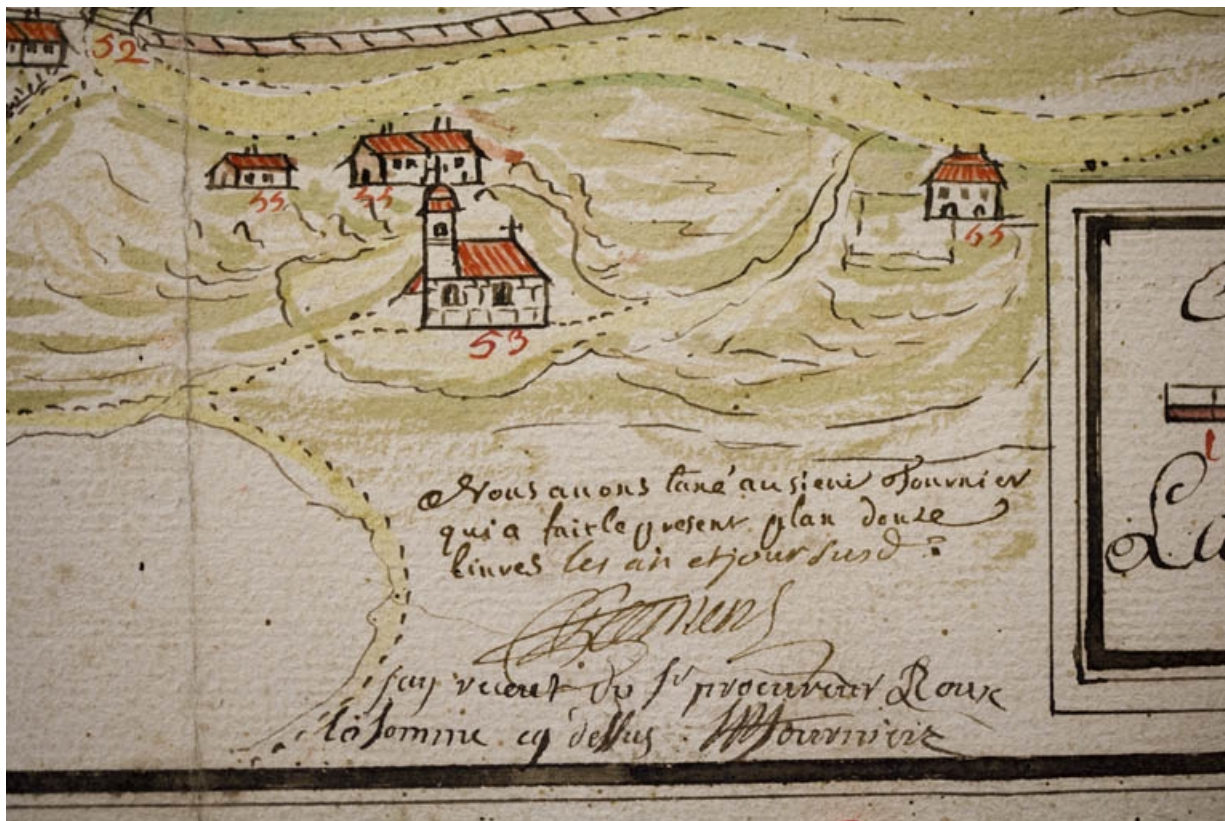 52
55
55
55
53
Nous auons taxé au sieur Fournier
qui a fait le present plan douze
liures les an et jour susd
jay receut du Sr procureur Roux
la somme cy dessus Fournier
1